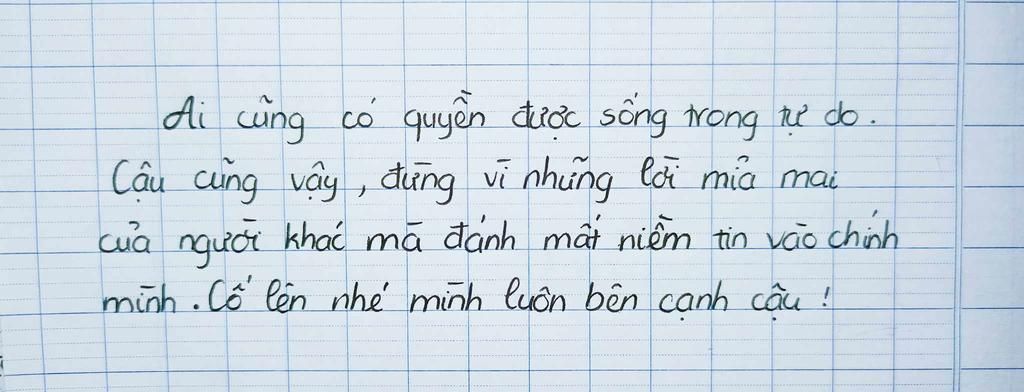 Ai cũng có quyền được sống trong tự do.
Cậu cũng vậy, đừng vì những lời mỉa mai
của người khác mà đánh mất niềm tin vào chính
mình. Cố lên nhé mình luôn bên cạnh cậu!